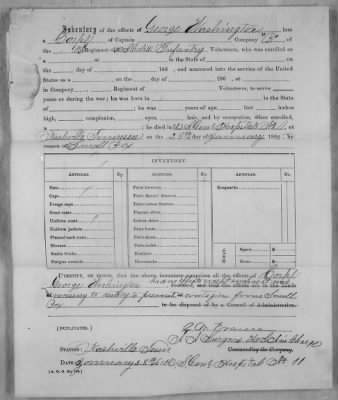 Inventory of the effects of George Washington late
a Corpl of Captain Company
Regiment of Infantry Volunteers, who was enrolled at
in the State of on the
day of 186 , and mustered into the service of the United
States as a on the day of 186 , at
in Company Regiment of Volunteers, to serve
years or during the war; he was born in in the State
of ; he was years of age, feet inches
high, complexion, eyes, hair, and by occupation, when enrolled,
a ; he died in Hospital No 11,
Nashville Tennessee on the 28th day of January 1865, by
reason of Small Pox
INVENTORY.
ARTICLES. No. ARTICLES. No. ARTICLES. No.
Hats
Caps
Forage caps
Great coats
Uniform coats
Uniform jackets
Flannel sack coats
Blouses
Stable frocks
Fatigue overalls
Pairs trowsers
Pairs flannel drawers
Pairs cotton drawers
Flannel shirts
Cotton shirts
Pairs boots
Pairs shoes
Pairs socks
Blankets
Haversacks
Knapsacks
Specie $
Notes $
I CERTIFY, on honor, that the above inventory comprises all the effects of Corpl
George Washington deceased, and that the effects are in the hands
necessary to destroy to prevent contagion from Small
Pox to be disposed of by a Council of Administration.
(DUPLICATES.)
Surgeon in charge
Commanding the Company.
STATION: Nashville Tenn
DATE: January 28th 65 Hospital No 11
(A. G. O. No.